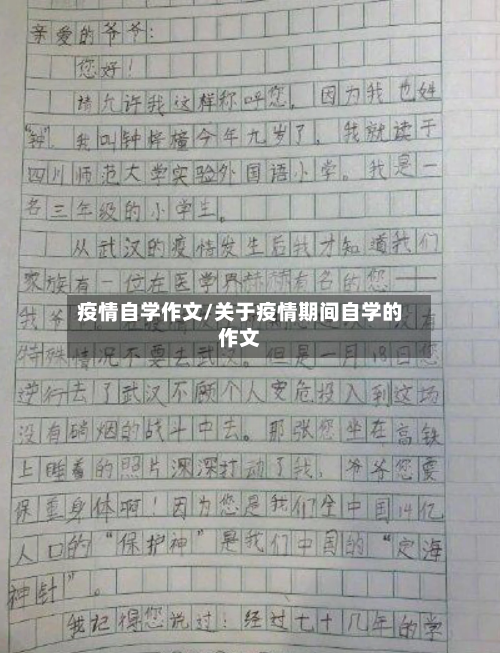 亲爱的爷爷：
您好！
请允许我这样称呼您，因为我也姓
“钟”。我叫钟梓橦今年九岁了，我就读于
四川师范大学实验外国语小学。我是一
名三年级的小学生。
从武汉的疫情发生后我才知道我们
家族有一位在医学界赫赫有名的您——
疫情自学作文/关于疫情期间自学的
作文
我爷
有
特殊情况不要去武汉。但是一月18日您
逆行去了武汉不顾个人安危投入到这场
没有硝烟的战斗中去。那张您坐在高铁
上睡着的照片深深打动了我，爷爷您要
保重身体啊！因为您是我们全中国14亿
人口的“保护神”是我们中国的“定海
神针”。
我记得您说过：经过七十几年的学